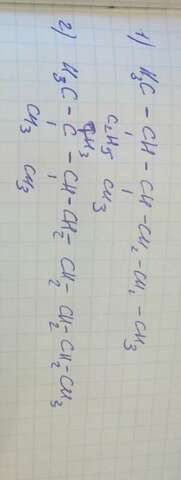 1) H₃C – CH – CH – CH₂ – CH₂ – CH₃
C₂H₅ CH₃
CH₃
2) H₃C – C – CH – CH₂ – CH₂ – CH₂ – CH₂ – CH₃
CH₃ CH₃